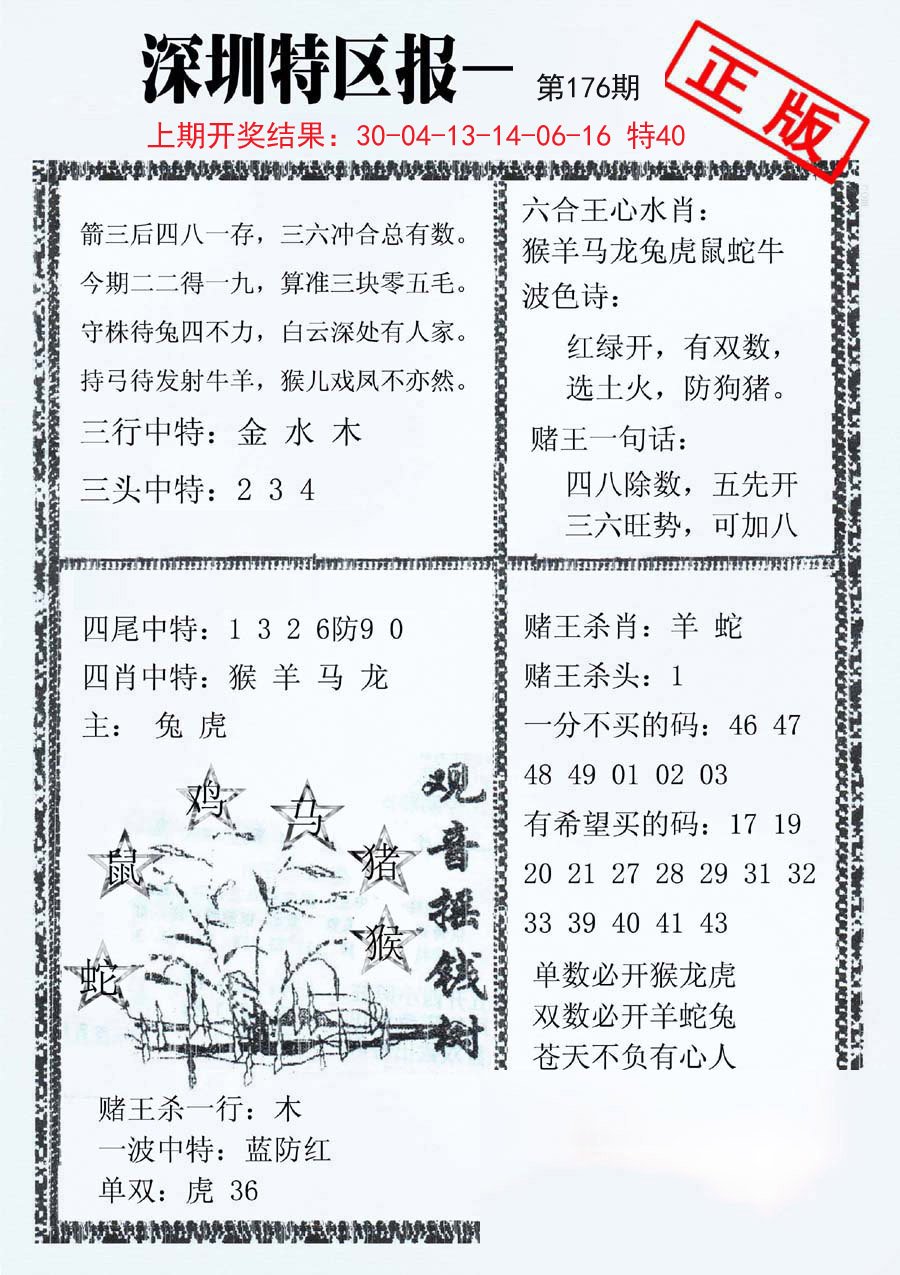 深圳特区报一 第176期
正版
上期开奖结果：30-04-13-14-06-16 特40
箭三后四八一存，三六冲合总有数。
今期二二得一九，算准三块零五毛。
守株待兔四不力，白云深处有人家。
持弓待发射牛羊，猴儿戏凤不亦然。
三行中特：金 水 木
三头中特：2 3 4
六合王心水肖：
猴羊马龙兔虎鼠蛇牛
波色诗：
红绿开，有双数，
选土火，防狗猪。
赌王一句话：
四八除数，五先开
三六旺势，可加八
四尾中特：1 3 2 6防9 0
四肖中特：猴 羊 马 龙
主： 兔 虎
鸡
马
鼠
猪
猴
蛇
观音摇钱树
赌王杀一行：木
一波中特：蓝防红
单双：虎 36
赌王杀肖：羊 蛇
赌王杀头：1
一分不买的码：46 47
48 49 01 02 03
有希望买的码：17 19
20 21 27 28 29 31 32
33 39 40 41 43
单数必开猴龙虎
双数必开羊蛇兔
苍天不负有心人